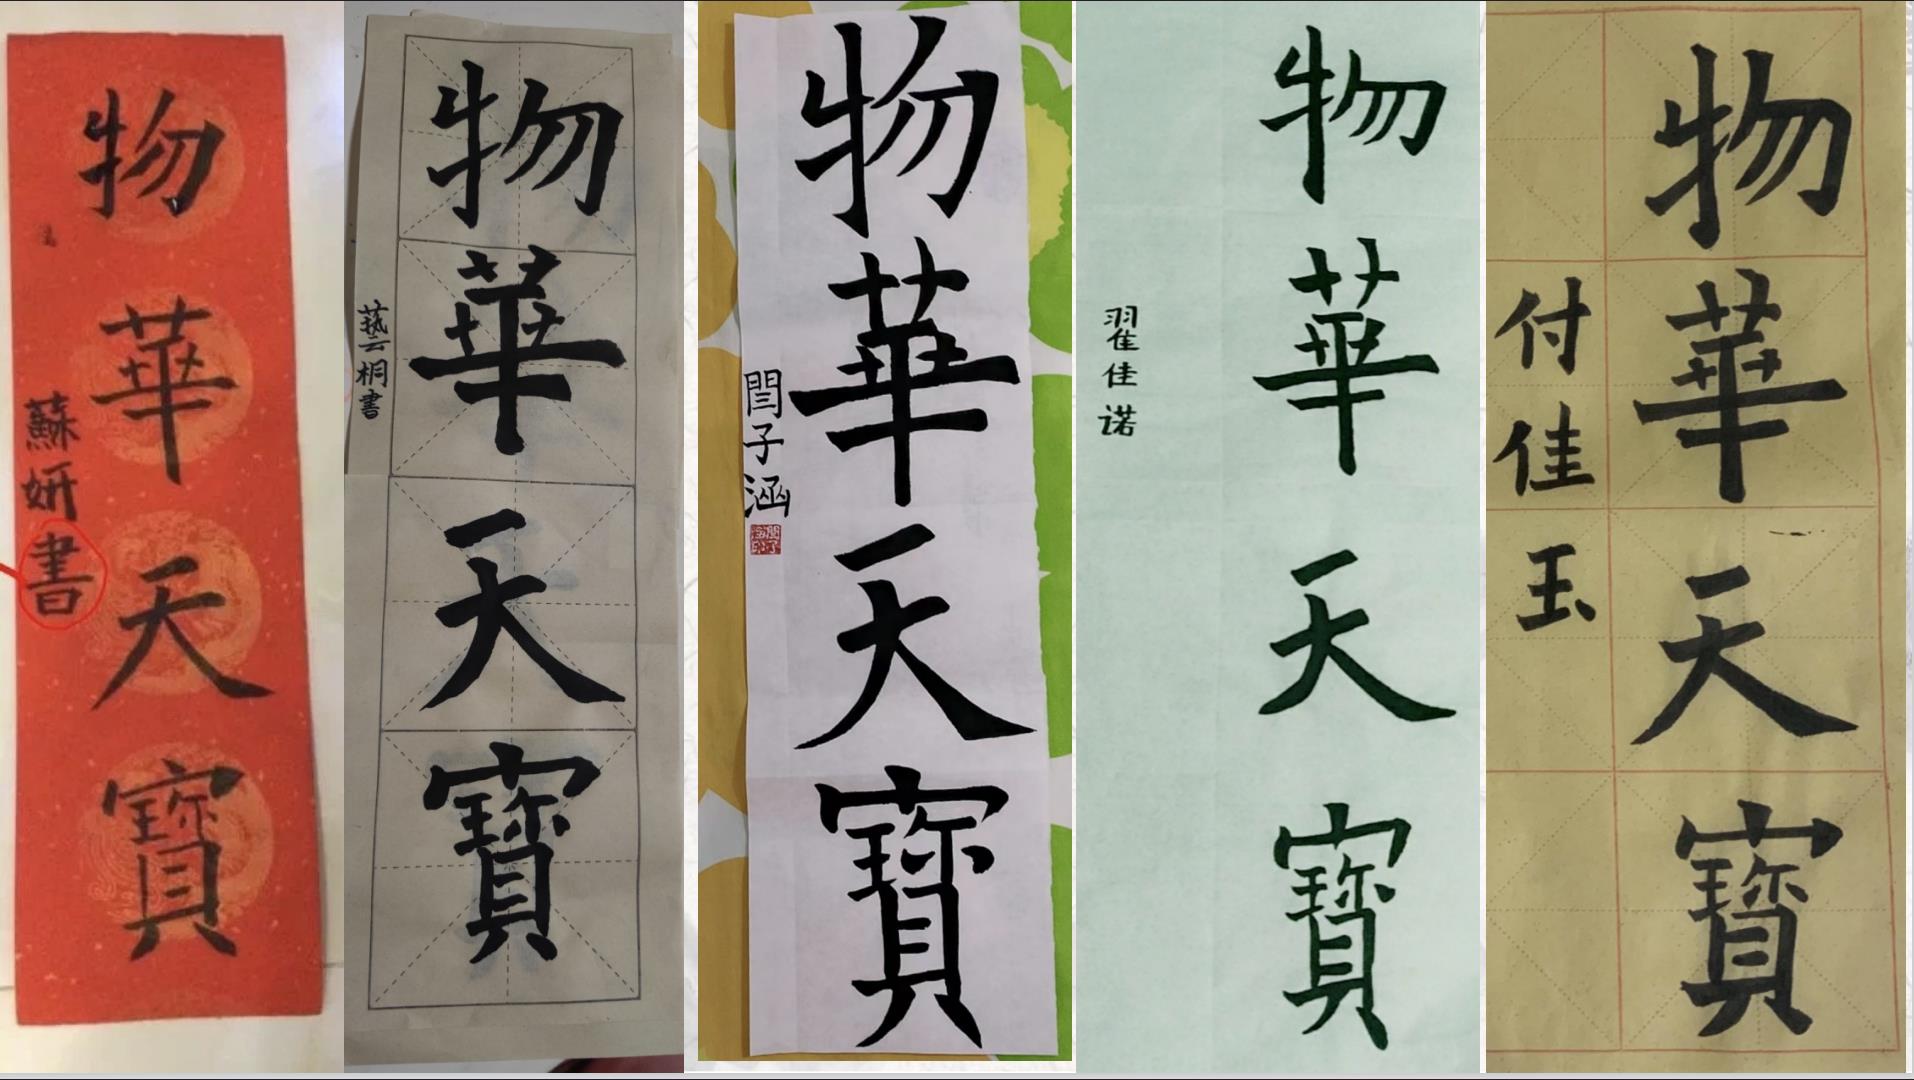 物華天寶
蘇妍書
物華天寶
藝桐書
物華天寶
閆子涵
物華天寶
翟佳诺
物華天寶
付佳玉